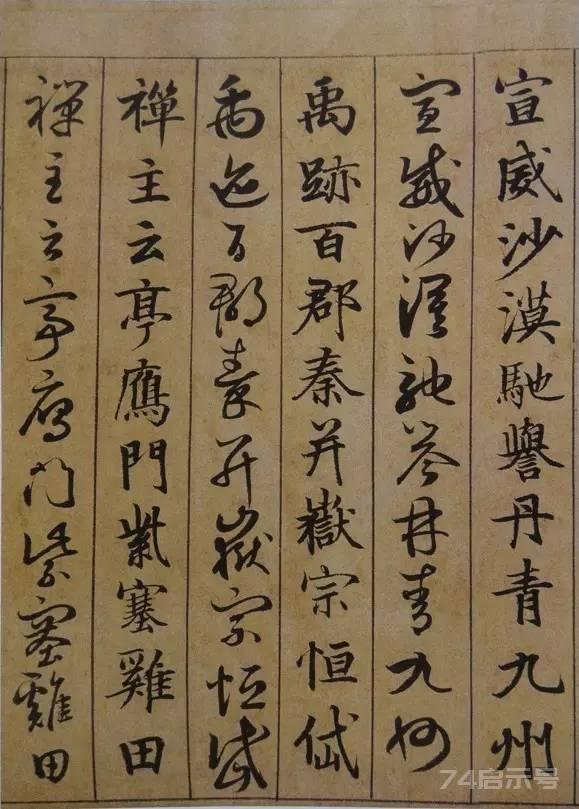 宣威沙漠馳譽丹青九州
宣威沙漠馳譽丹青九州
禹跡百郡秦并嶽宗恒岱
禹迹百郡秦并嶽宗恒岱
禪主云亭鷹門紫塞雞田
禪主云亭鴈門紫塞雞田
74启示号